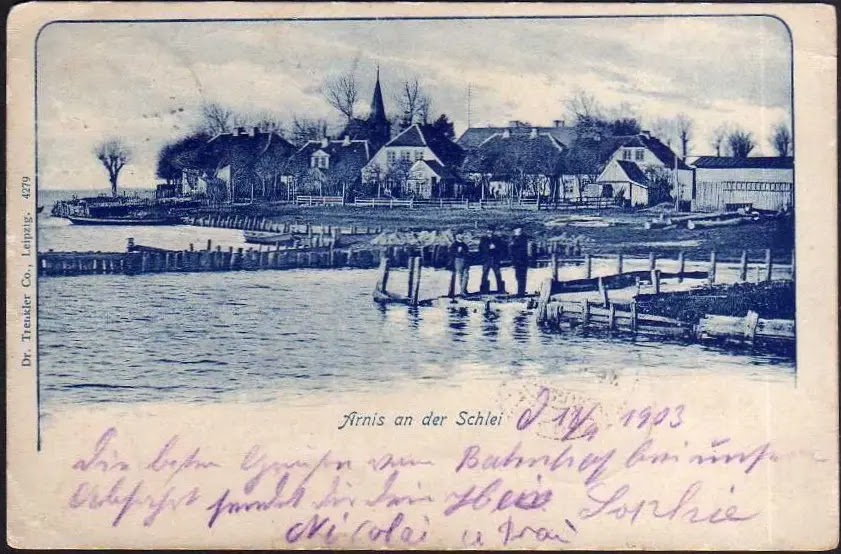 Dr. Trenkler Co., Leipzig. 4279
Arnis an der Schlei
1903
Die besten Grüße vom Bahnhof bei unserer
Abfahrt sendet Dir Sophie
Nicolai u Frau